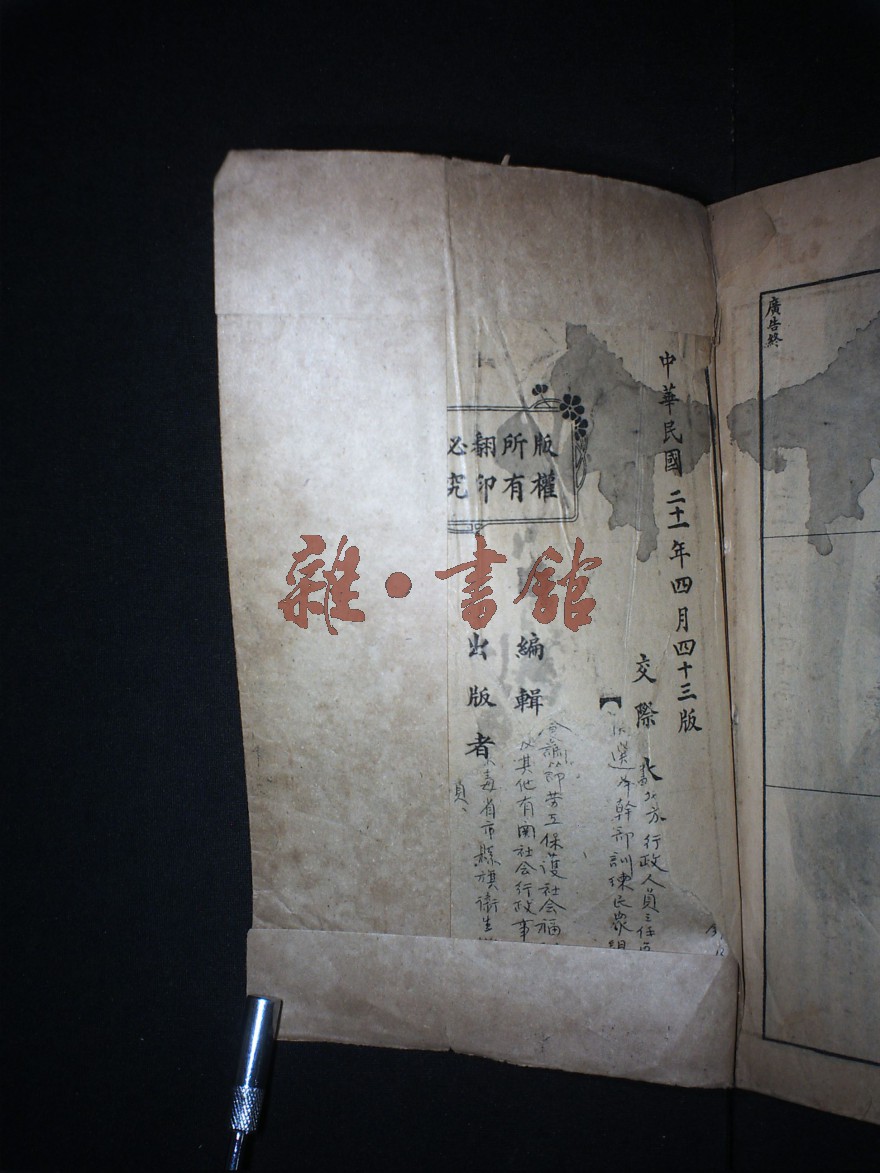 廣告終
中華民國二十一年四月四十三版
交際大
行政人員三任
選 幹部訓練民眾組
版權所有翻印必究
編輯
節勞工保護社會福
其他有關社會行政事
出版者
毒省市縣旗衛生
員、
雜·書館